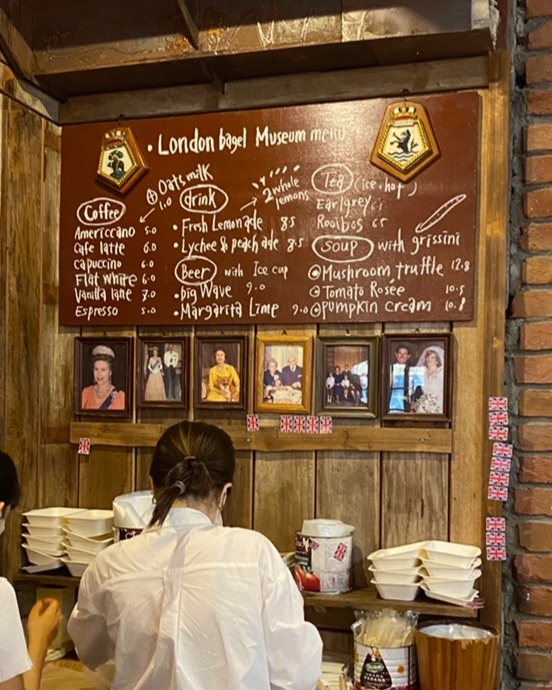 • London bagel Museum menu
⊕ Oats milk
1.0
Coffee
Americcano 5.0
Cafe latte 6.0
Capuccino 6.0
Flat white 6.0
Vanilla latte 7.0
Espresso 5.0
drink
2 whole
lemons
• Fresh Lemonade 8.5
• Lychee & peach ade 8.5
Beer with Ice cup
• big Wave 9.0
• Margarita Lime 9.0
Tea (ice, hot)
Earlgrey
Rooibos 6.5
Soup with grissini
@Mushroom truffle 12.8
@Tomato Rosee 10.5
@Pumpkin cream